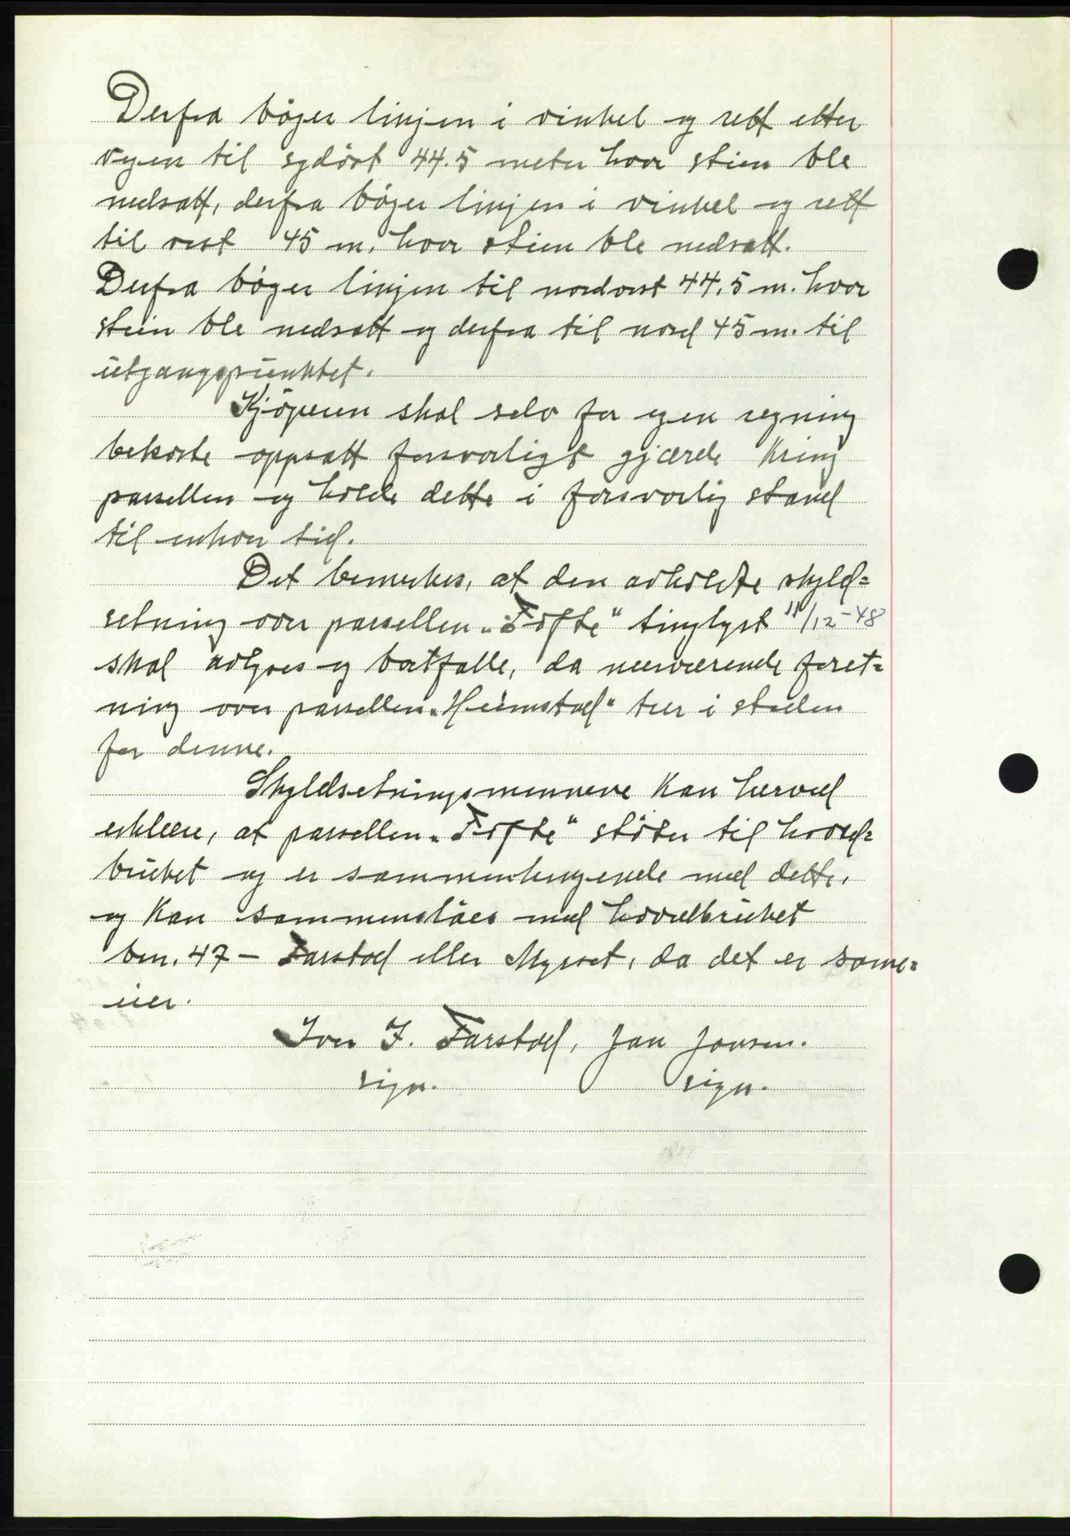 Derfra böger linjen i vinkel og rett etter
vegen til sydöst 44.5 meter hvor stien ble
nedsatt, derfra böger linjen i vinkel og rett
til vest 45 m. hvor stien ble nedsatt.
Derfra böger linjen til nordvest 44.5 m. hvor
stein ble nedsatt og derfra til nord 45 m. til
utgangspunktet.
Kjöperen skal selv for egen regning
bekoste oppsatt forsvarligt gjærde kring
parsellen og holde dette i forsvarlig stand
til enhver tid.
Det bemerkes, at den avholdte skyld=
setning over parsellen „Tofte“ tinglyst 11/12-48
skal avlyses og bortfalle, da nærværende foret=
ning over parsellen „Heimstad“ trer i steden
for denne.
Skyldsetningsmennene kan herved
erklære, at parsellen „Tofte“ stöter til hoved=
bruket og er sammenhengende med dette,
og kan sammenslåes med hovedbruket
bnr. 47 – Farstad eller Myrset, da det er same=
eier.
Iver J. Farstad, Jon Jonsen.
sign. sign.